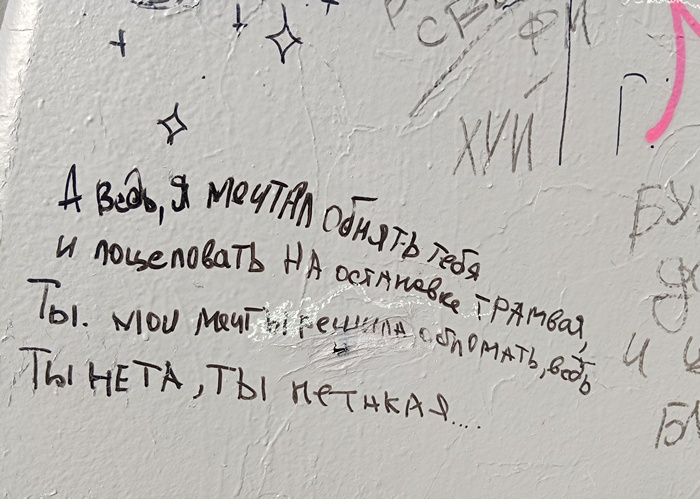 СВ
ФИ
ХУЙ
А ведь, я мечтал обнять тебя
и поцеловать на остановке трамвая,
Ты. мои мечты решила обломать, ведь
Ты не та, ты не такая....
БУ
и
БЛ